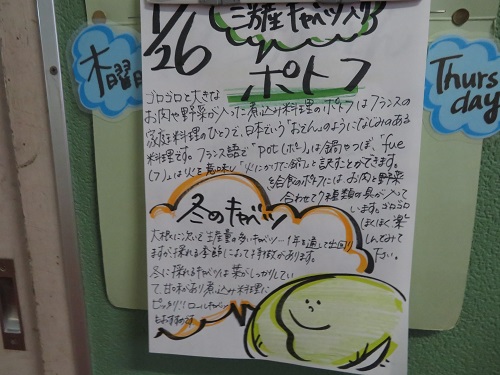 1/26
三浦産キャベツ入り
ポトフ
木曜日
Thurs
day
ゴロゴロと大きな
お肉や野菜が入った煮込み料理のポトフはフランスの
家庭料理のひとつで、日本でいう「おでん」のようになじみのある
料理です。フランス語で「pot(ポ)」は鍋やつぼ、「fue
(フ)」は火を意味し「火にかけた鍋」と訳すことができます。
給食のポトフには お肉と野菜
合わせて7種類の具が入って
います。ゴロゴロ
ほくほく楽
しんでみて
下さい。
冬のキャベツ
大根に次いで生産量の多いキャベツ…1年を通して出回り
ますが採れる季節によって特徴があります。
冬に採れるキャベツは葉がしっかりしてい
て甘味があり煮込み料理に
ピッタリ!!ロールキャベツ
もおすすめです